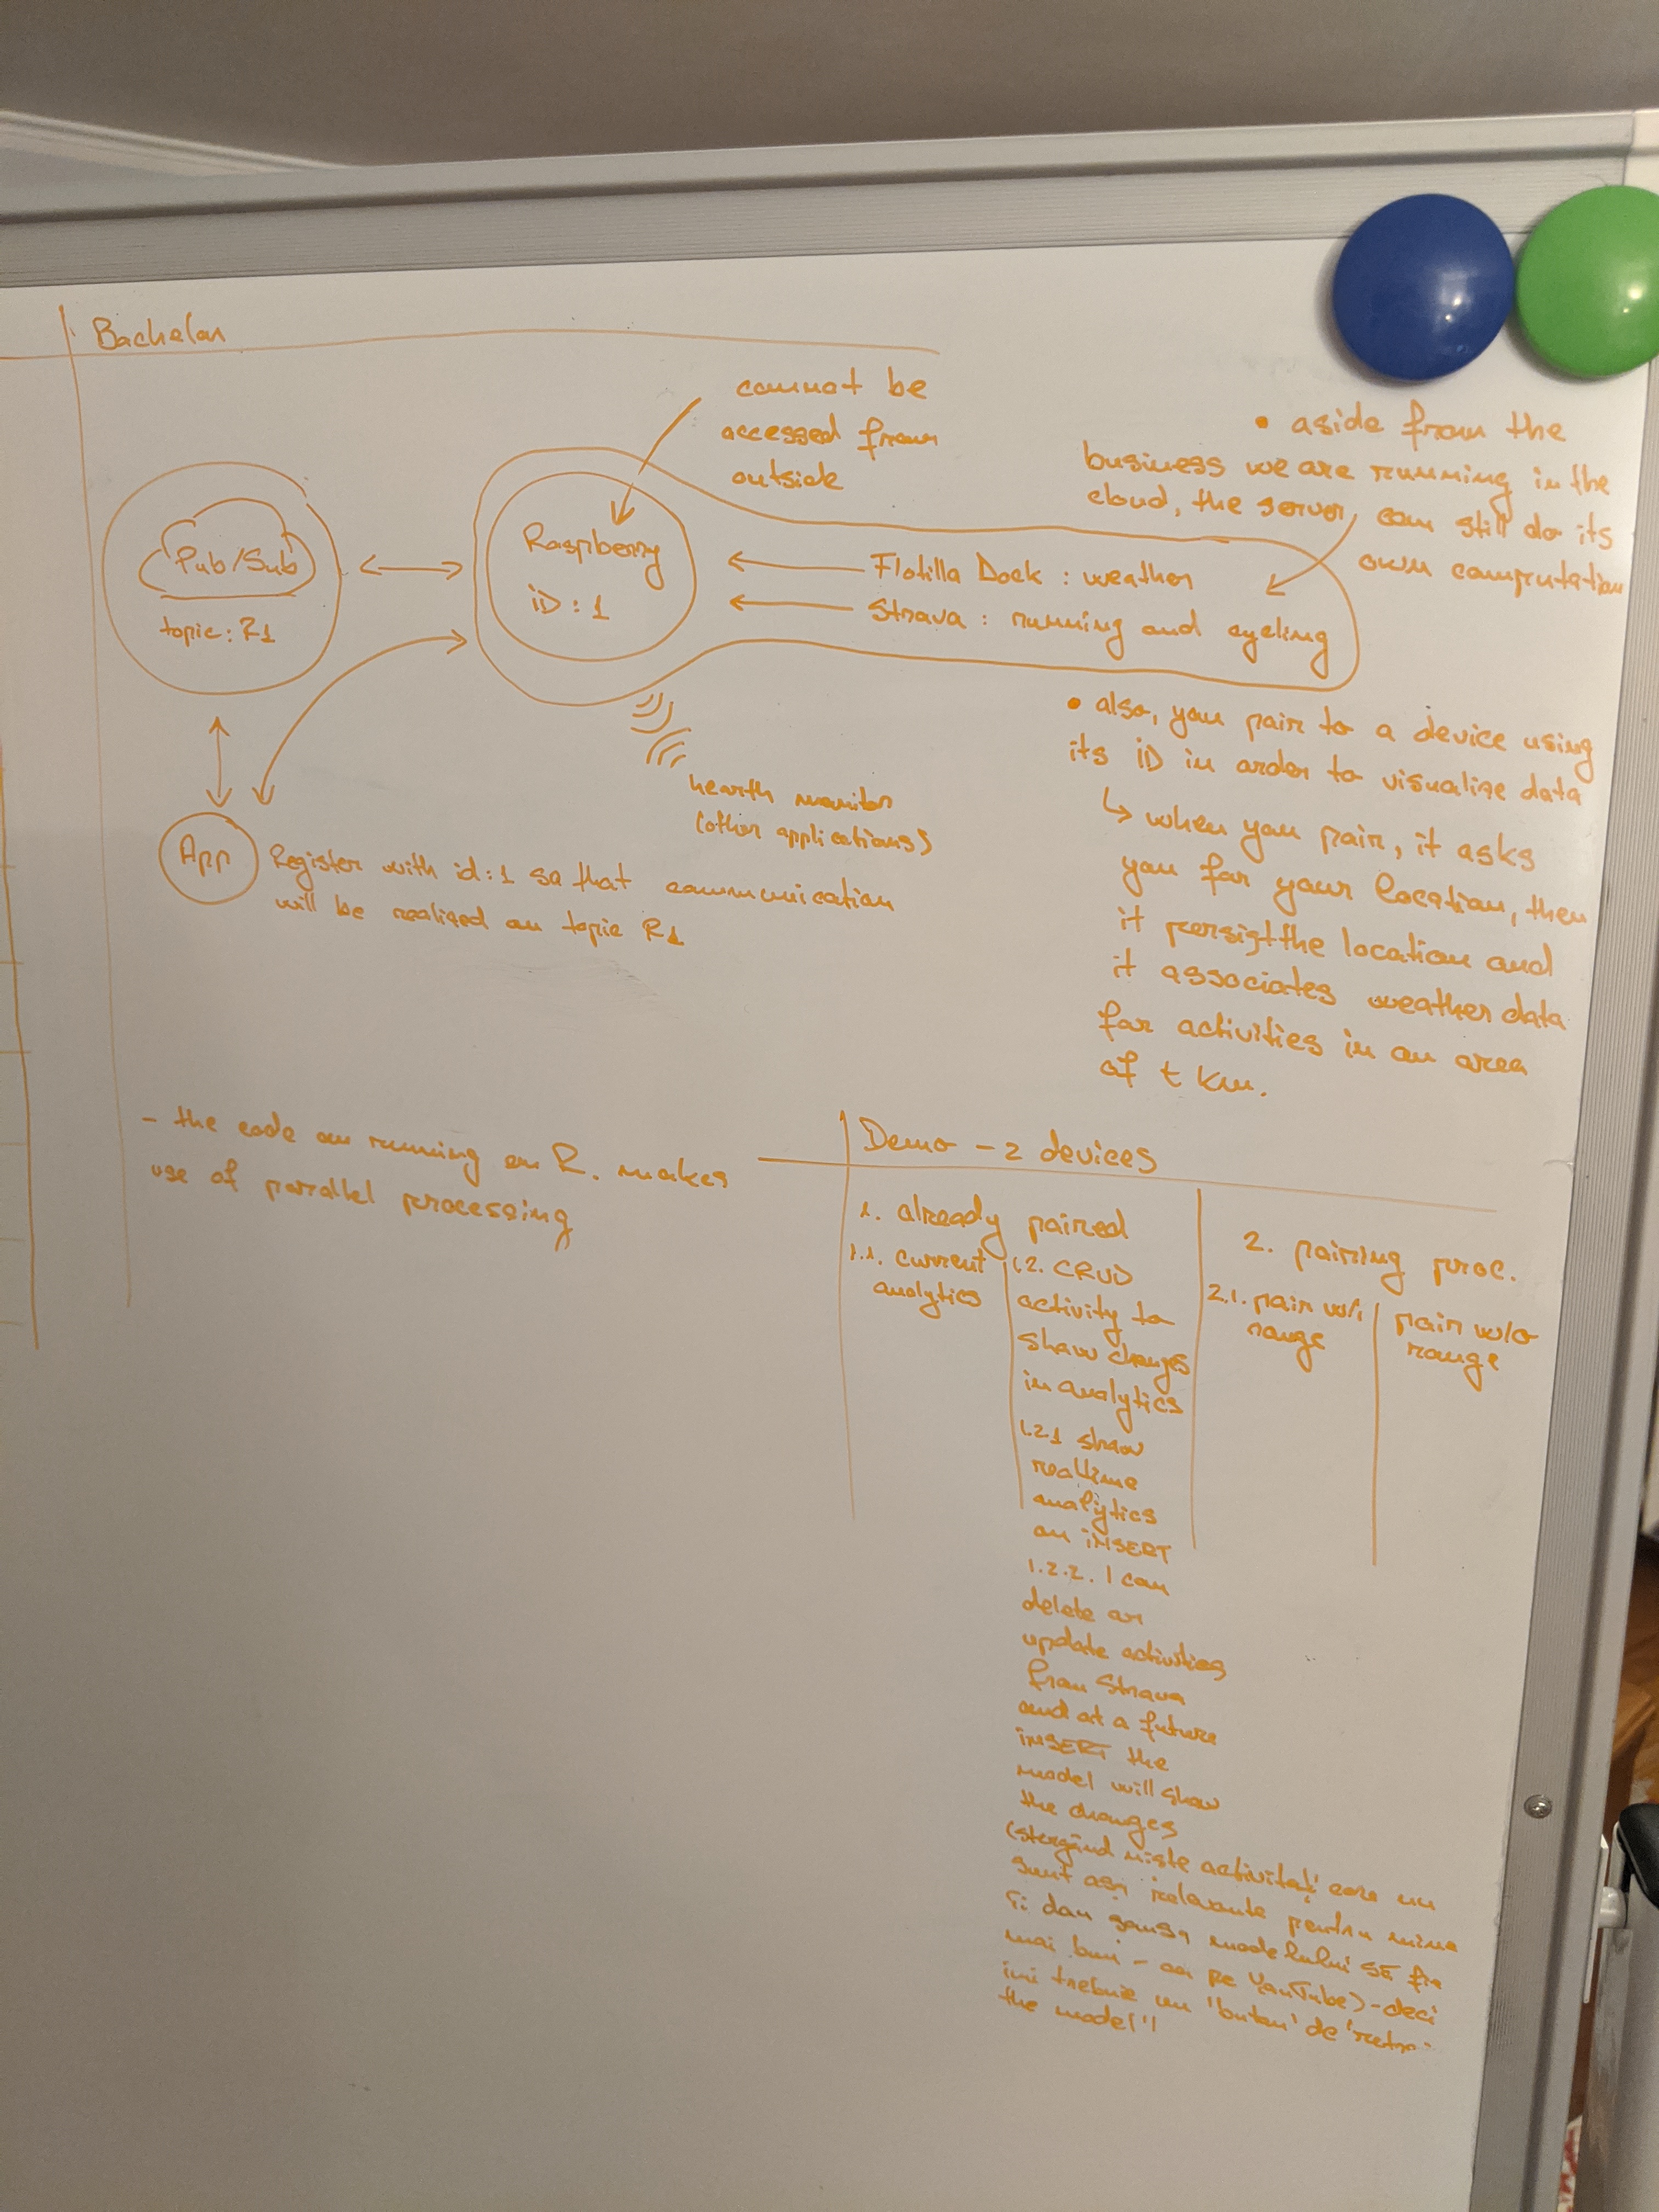 Bachelor
cannot be
accessed from
outside
• aside from the
business we are running in the
cloud, the server, can still do its
own computation
Pub/Sub
topic: R1
Raspberry
iD: 1
Flotilla Dock : weather
Strava : running and cycling
hearth monitor
(other applications)
App
Register with id:1 so that communication
will be realized on topic R1
• also, you pair to a device using
its iD in order to visualize data
↳ when you pair, it asks
you for your location, then
it persist the location and
it associates weather data
for activities in an area
of t km.
- the code on running on R. makes
use of parallel processing
Demo - 2 devices
1. already paired
1.1. current
analytics
1.2. CRUD
activity to
show changes
in analytics
1.2.1 show
realtime
analytics
on iNSERT
1.2.2. I can
delete or
update activities
from Strava
and at a future
iNSERT the
model will show
the changes
(stergând niste activitati care nu
sunt asa relevante pentru mine
îi dau sansa modelului să fie
mai bun - ca pe YouTube) - deci
imi trebuie un 'buton' de 'retra-
the model'!
2. pairing proc.
2.1. pair w/i
range
pair w/o
range